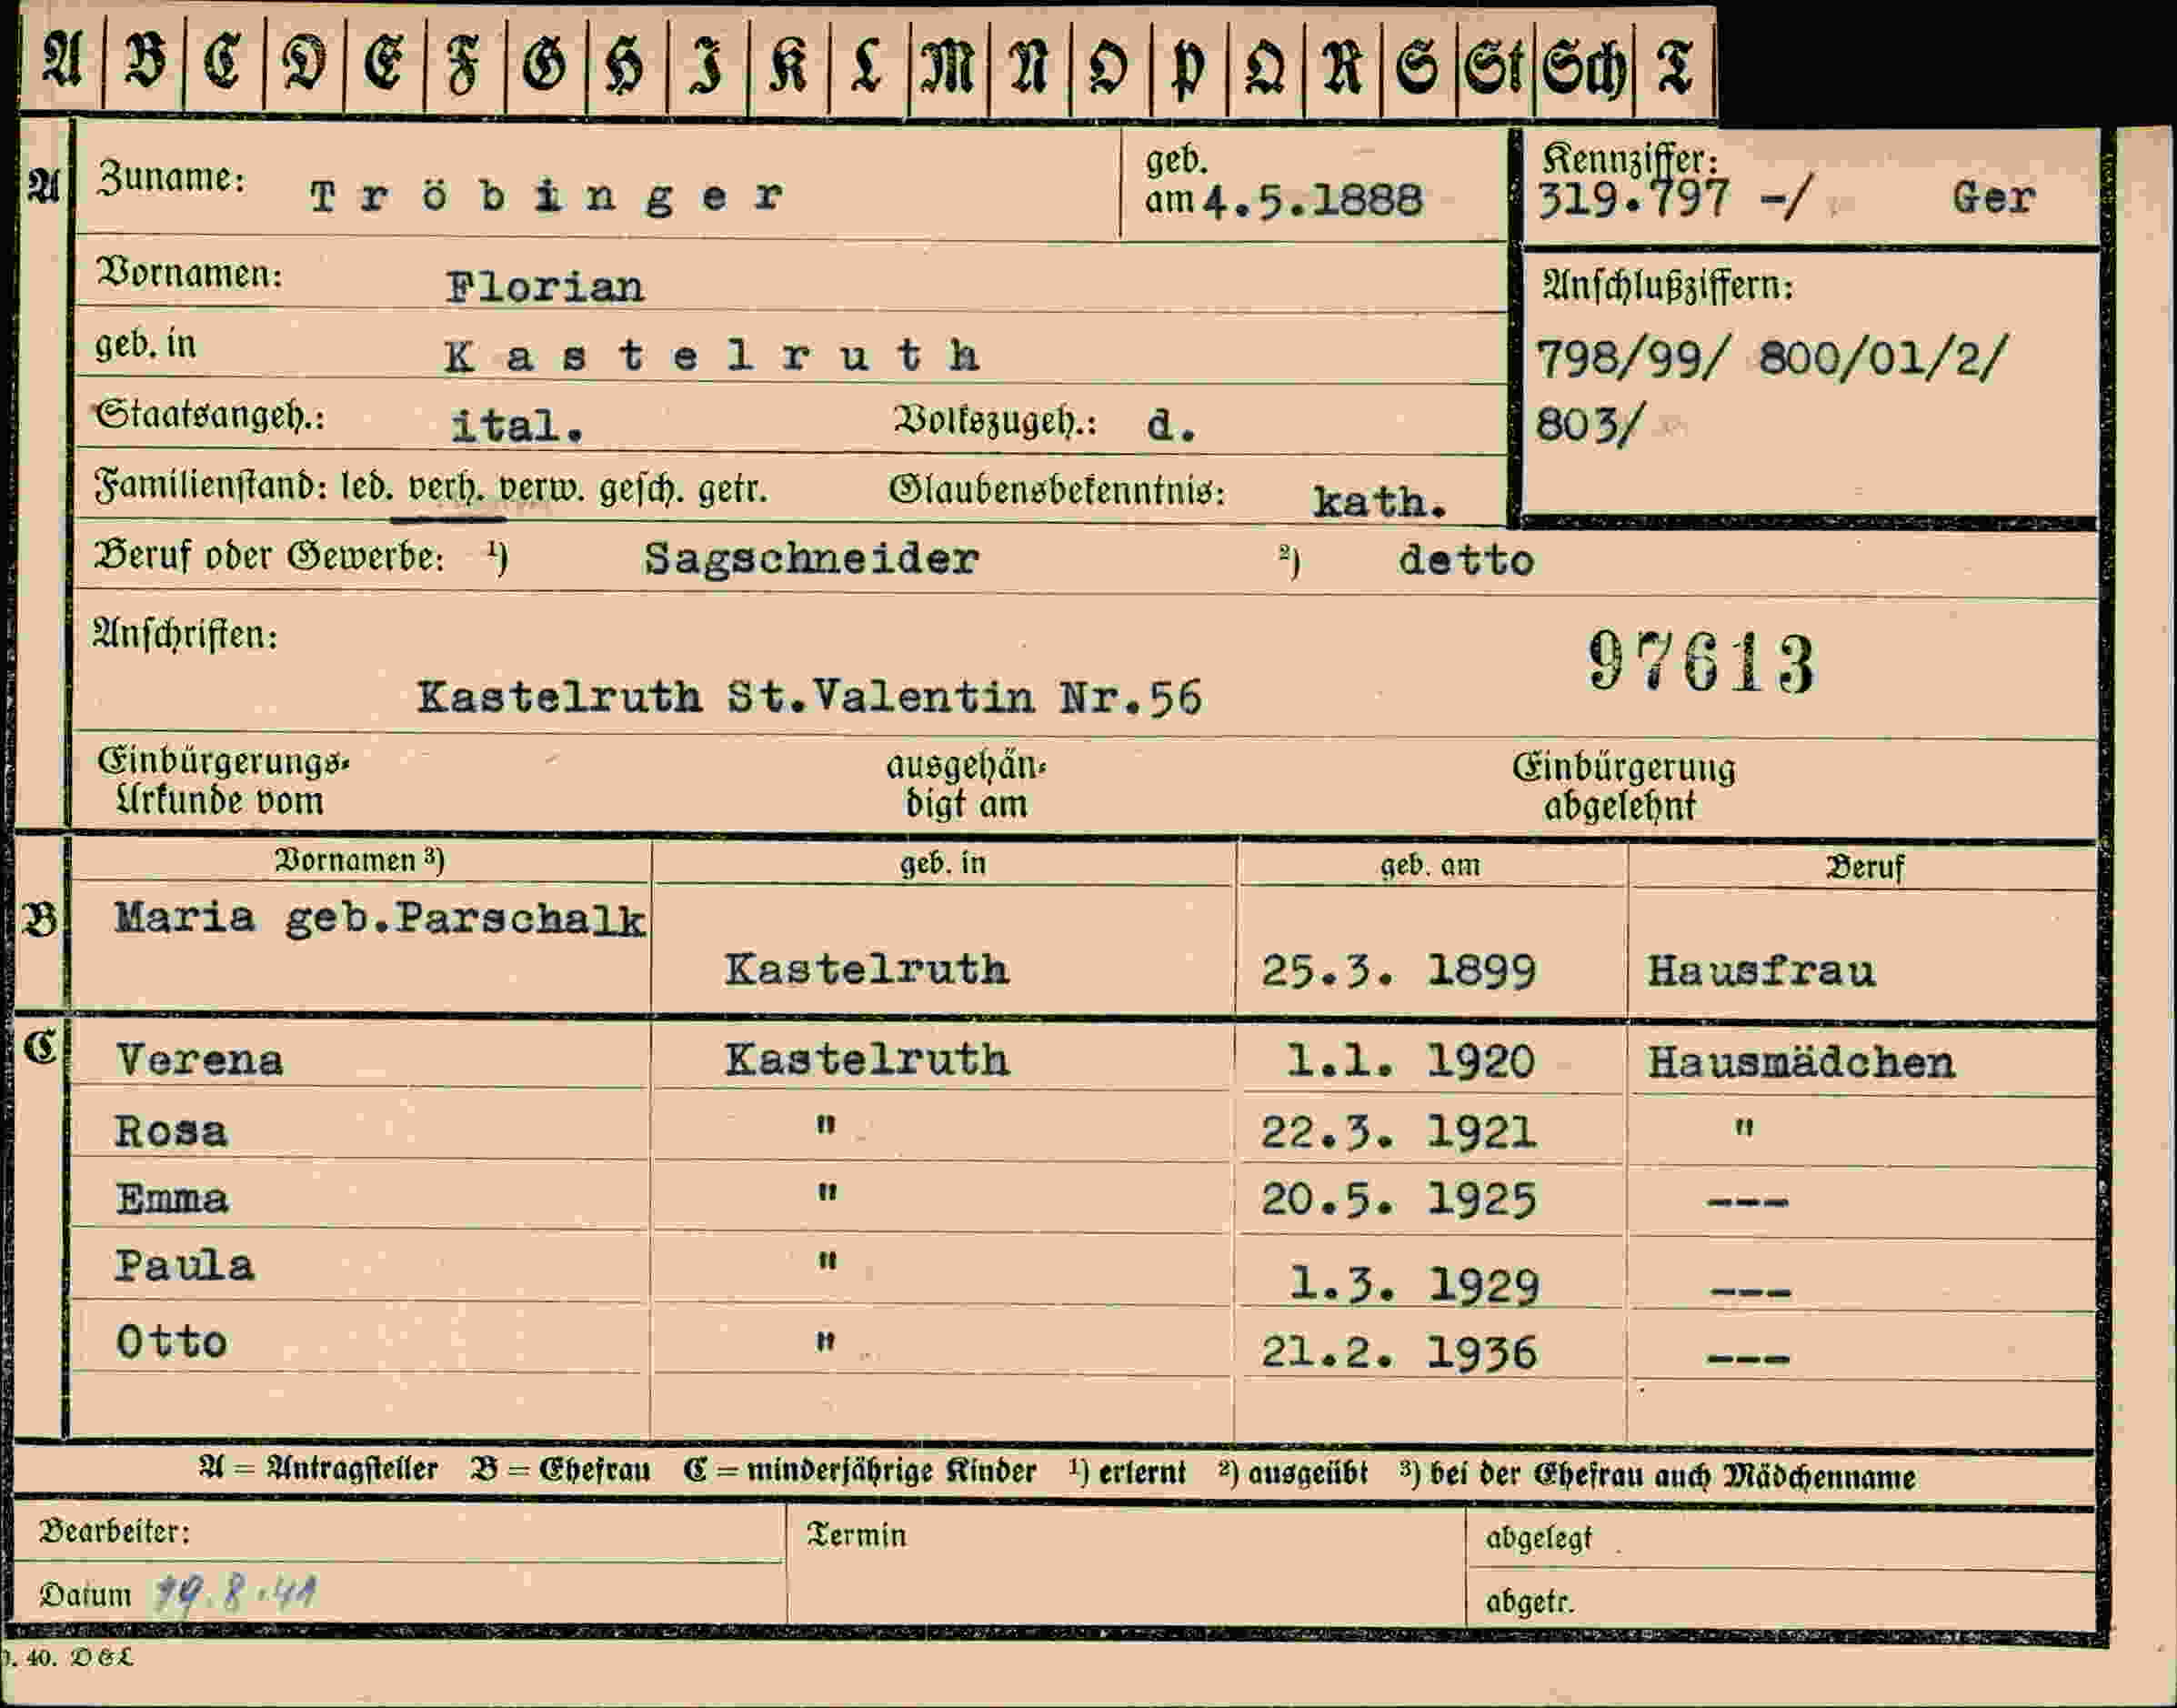 A B C D E F G H I K L M N O P Q R S St Sch T
A Zuname: Tröbinger geb. am 4.5.1888 Kennziffer: 319.797 -/ Ger
Vornamen: Florian
Anschlußziffern:
geb. in Kastelruth 798/99/ 800/01/2/
Staatsangeh.: ital. Volkszugeh.: d. 803/
Familienstand: led. verh. verw. gesch. getr. Glaubensbekenntnis: kath.
Beruf oder Gewerbe: ¹) Sagschneider ²) detto
Anschriften: 97613
Kastelruth St.Valentin Nr.56
Einbürgerungs- ausgehän- Einbürgerung
Urkunde vom digt am abgelehnt
Vornamen ³) geb. in geb. am Beruf
B Maria geb.Parschalk
Kastelruth 25.3. 1899 Hausfrau
C Verena Kastelruth 1.1. 1920 Hausmädchen
Rosa " 22.3. 1921 "
Emma " 20.5. 1925 ---
Paula " 1.3. 1929 ---
Otto " 21.2. 1936 ---
A = Antragsteller B = Ehefrau C = minderjährige Kinder ¹) erlernt ²) ausgeübt ³) bei der Ehefrau auch Mädchenname
Bearbeiter: Termin abgelegt
Datum 19.8.41 abgetr.
. 40. D & L